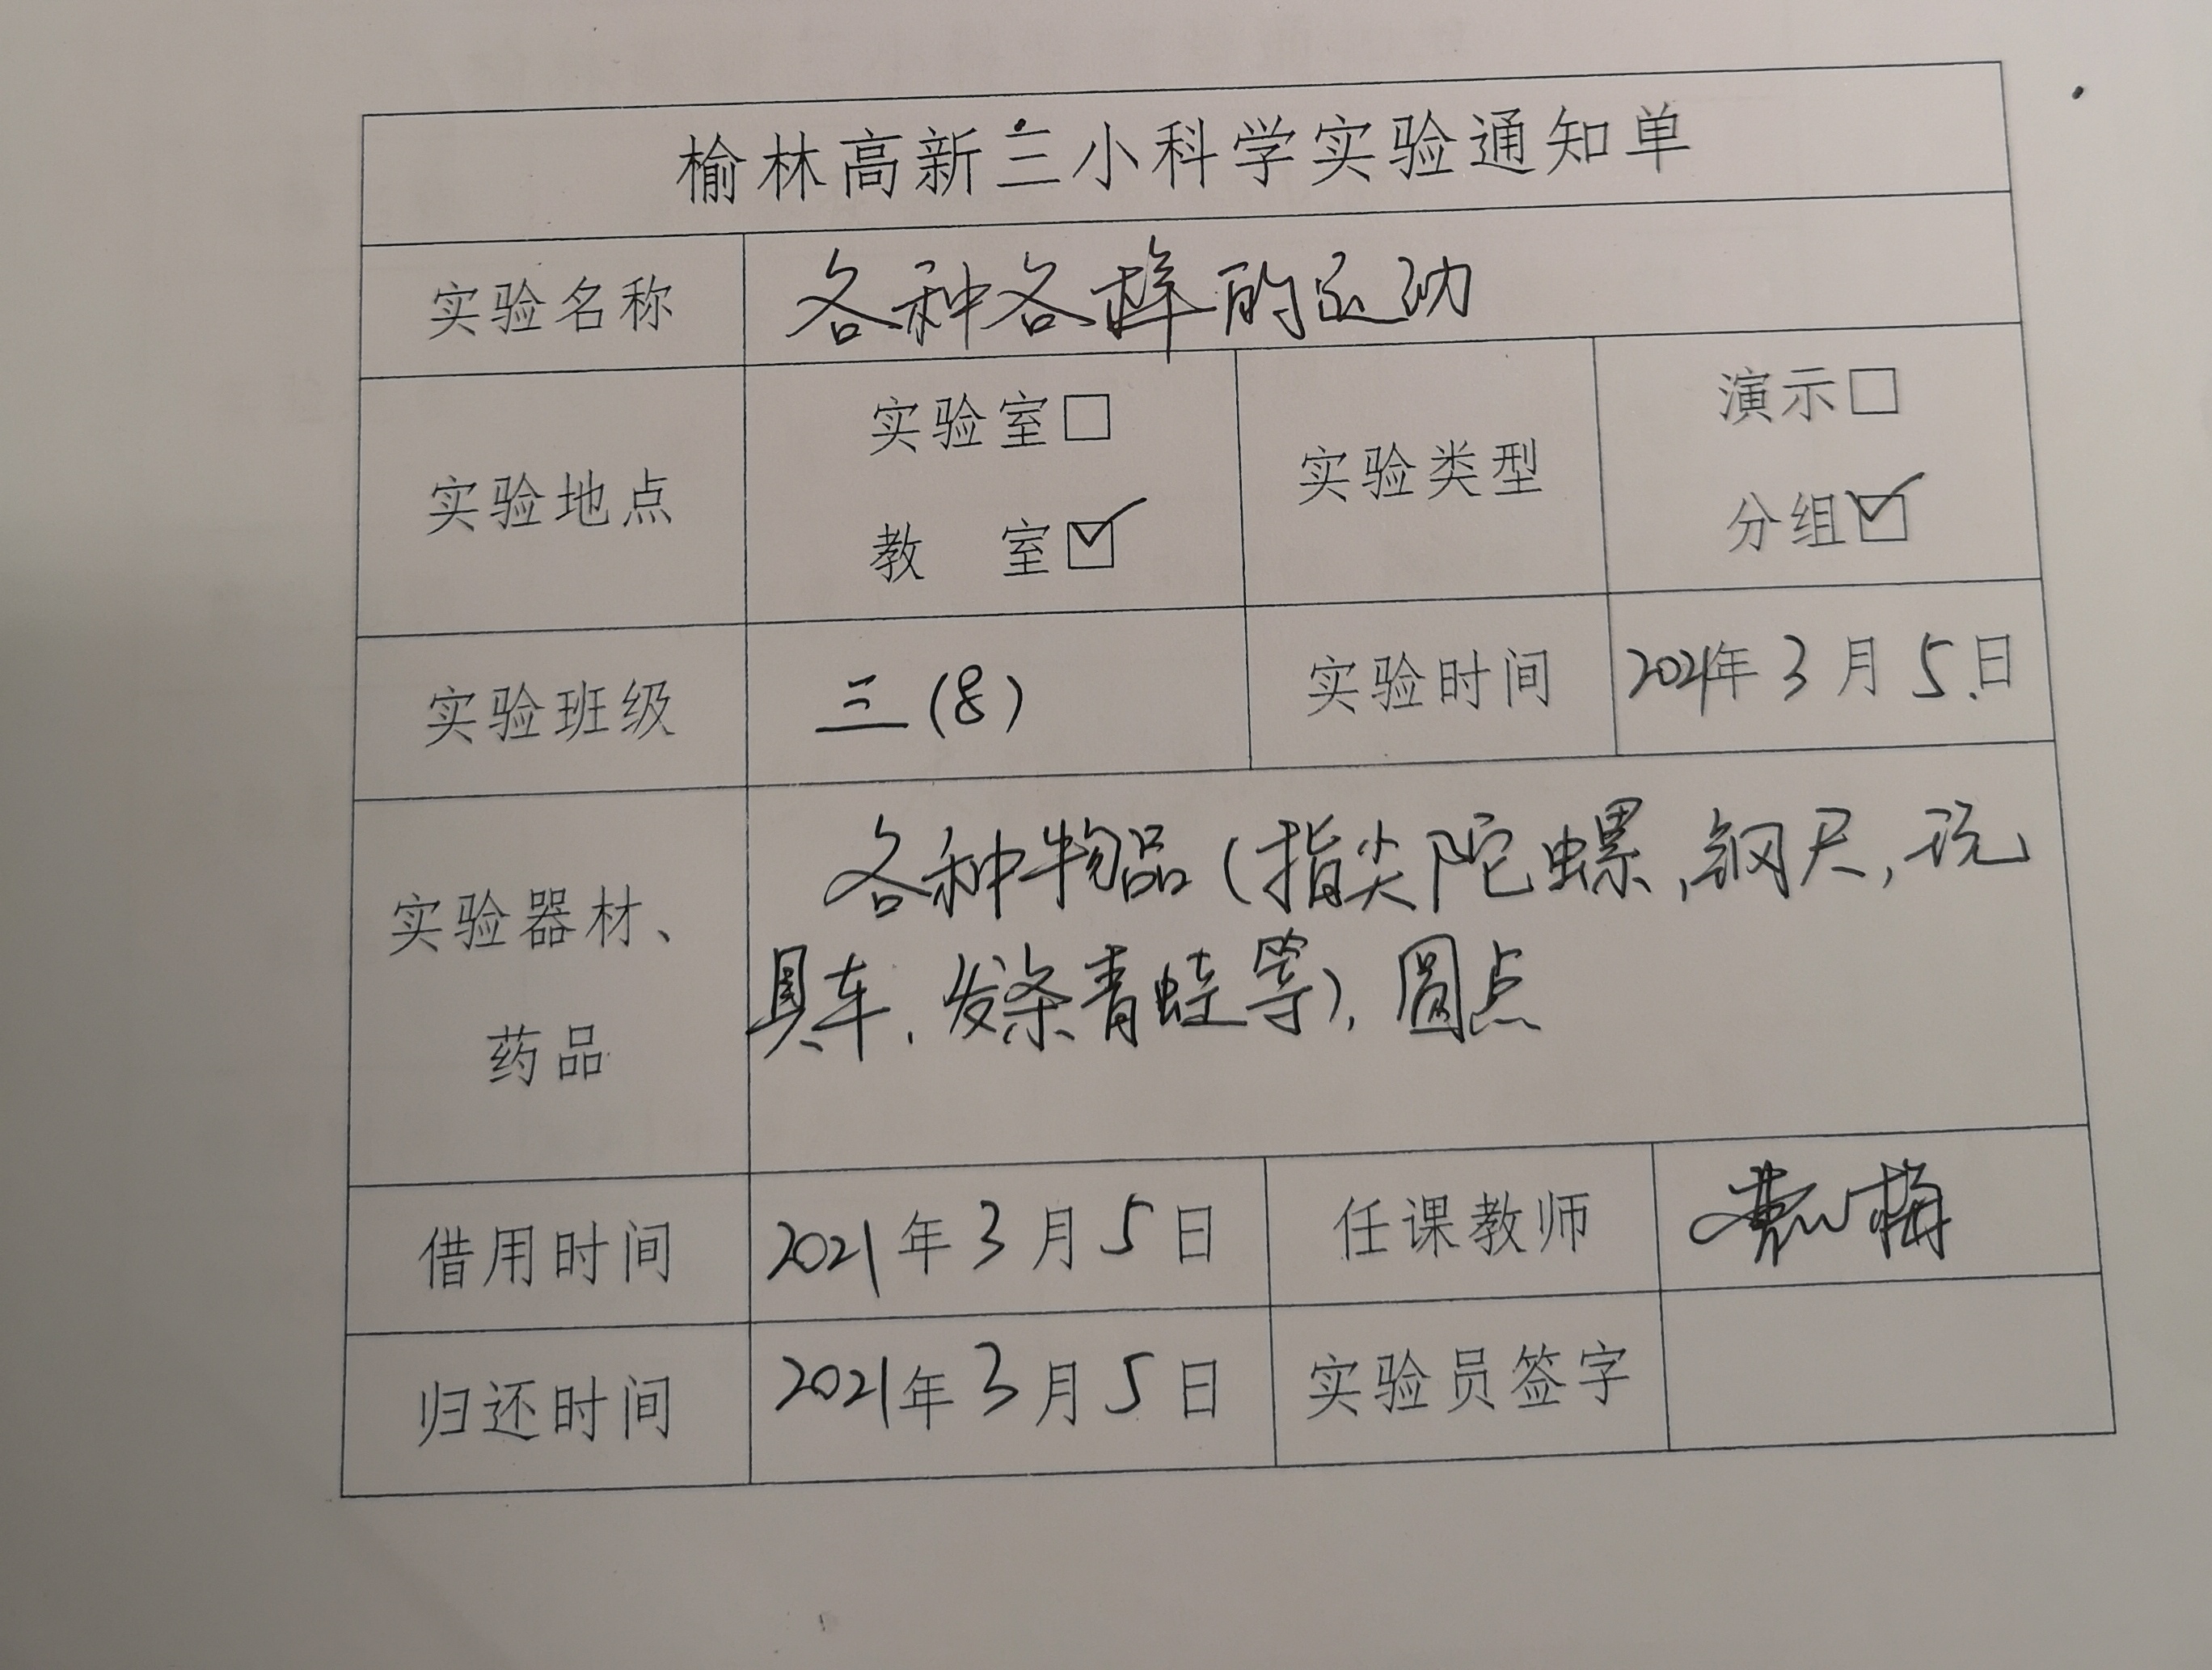 榆林高新三小科学实验通知单
实验名称 各种各样的运动
实验地点 实验室□ 实验类型 演示□
教 室☑ 分组☑
实验班级 三(8) 实验时间 2021年3月5日
实验器材、药品 各种物品(指尖陀螺,钢尺,玩
具车,发条青蛙等),圆点
借用时间 2021年3月5日 任课教师
归还时间 2021年3月5日 实验员签字